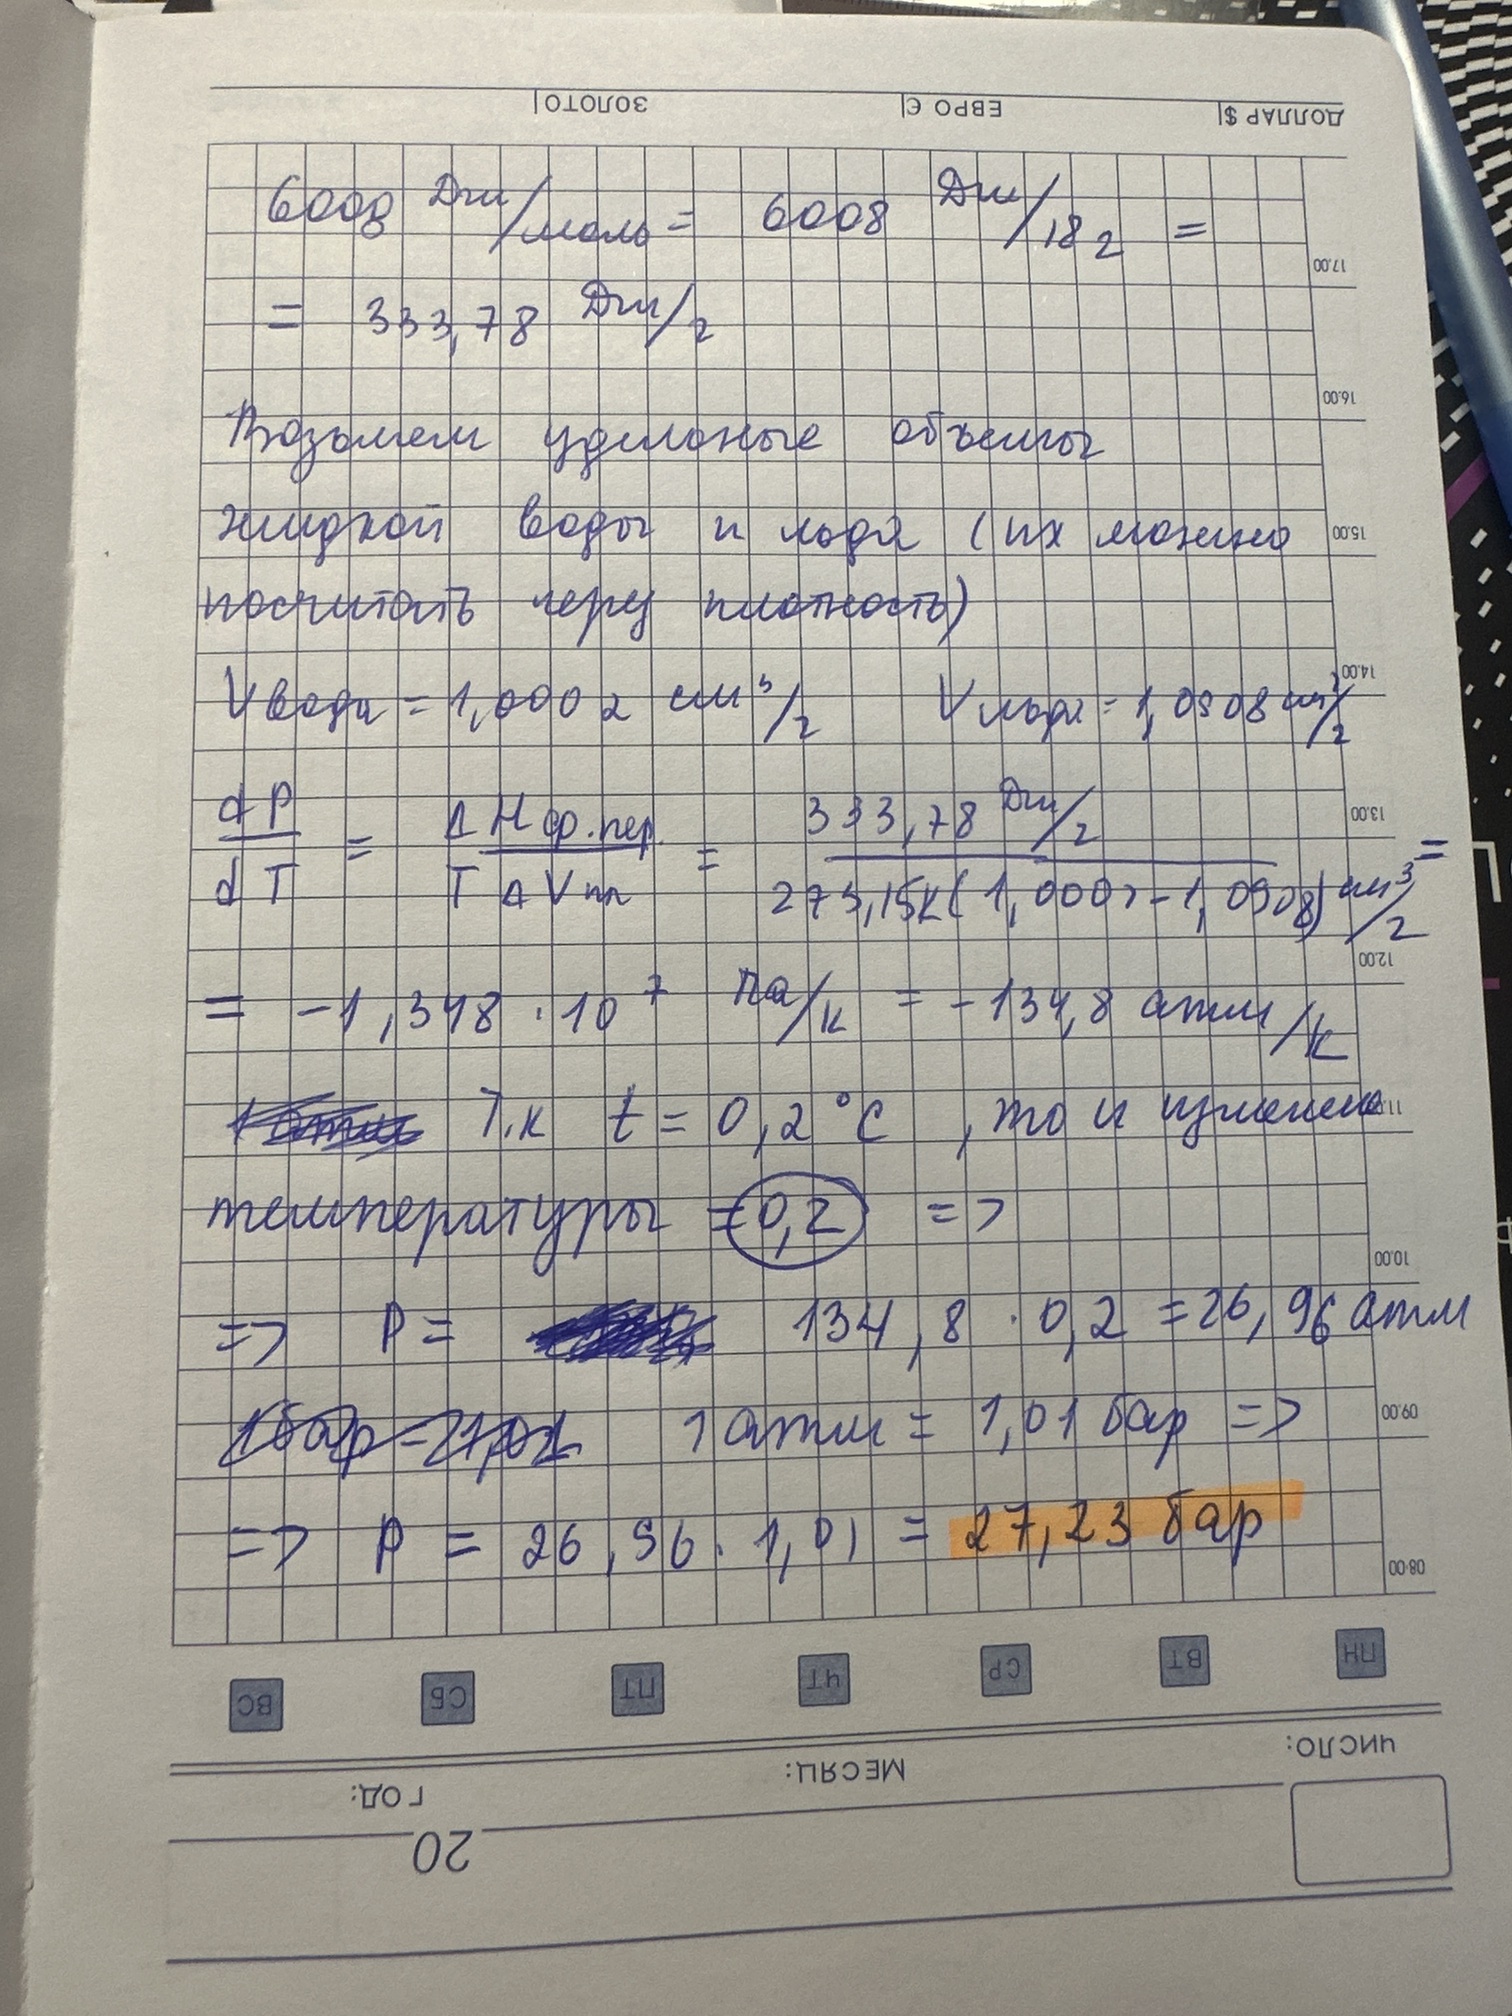 ДОЛЛАР $| ЕВРО €| ЗОЛОТО|
6008 Дж/моль = 6008 Дж/18 г =
= 333,78 Дж/г
Возьмем удельные объемы
жидкой воды и льда (их можно
посчитать через плотность)
Vвода = 1,0002 см³/г Vльда = 1,0908 см³/г
dP/dT = ΔHф.пер./TΔVпл = 333,78 Дж/г / 273,15К(1,0002-1,0908) см³/г =
= -1,348 · 10⁷ Па/К = -134,8 атм/К
Т.к t = 0,2 °С , то и изменение
температуры = 0,2 =>
=> P = 134,8 · 0,2 = 26,96 атм
1 бар = 1,01 1 атм = 1,01 бар =>
=> P = 26,96 · 1,01 = 27,23 бар
17.00
16.00
15.00
14.00
13.00
12.00
11.00
10.00
09.00
08.00
ПН ВТ СР ЧТ ПТ СБ ВС
ЧИСЛО: МЕСЯЦ: ГОД:
20